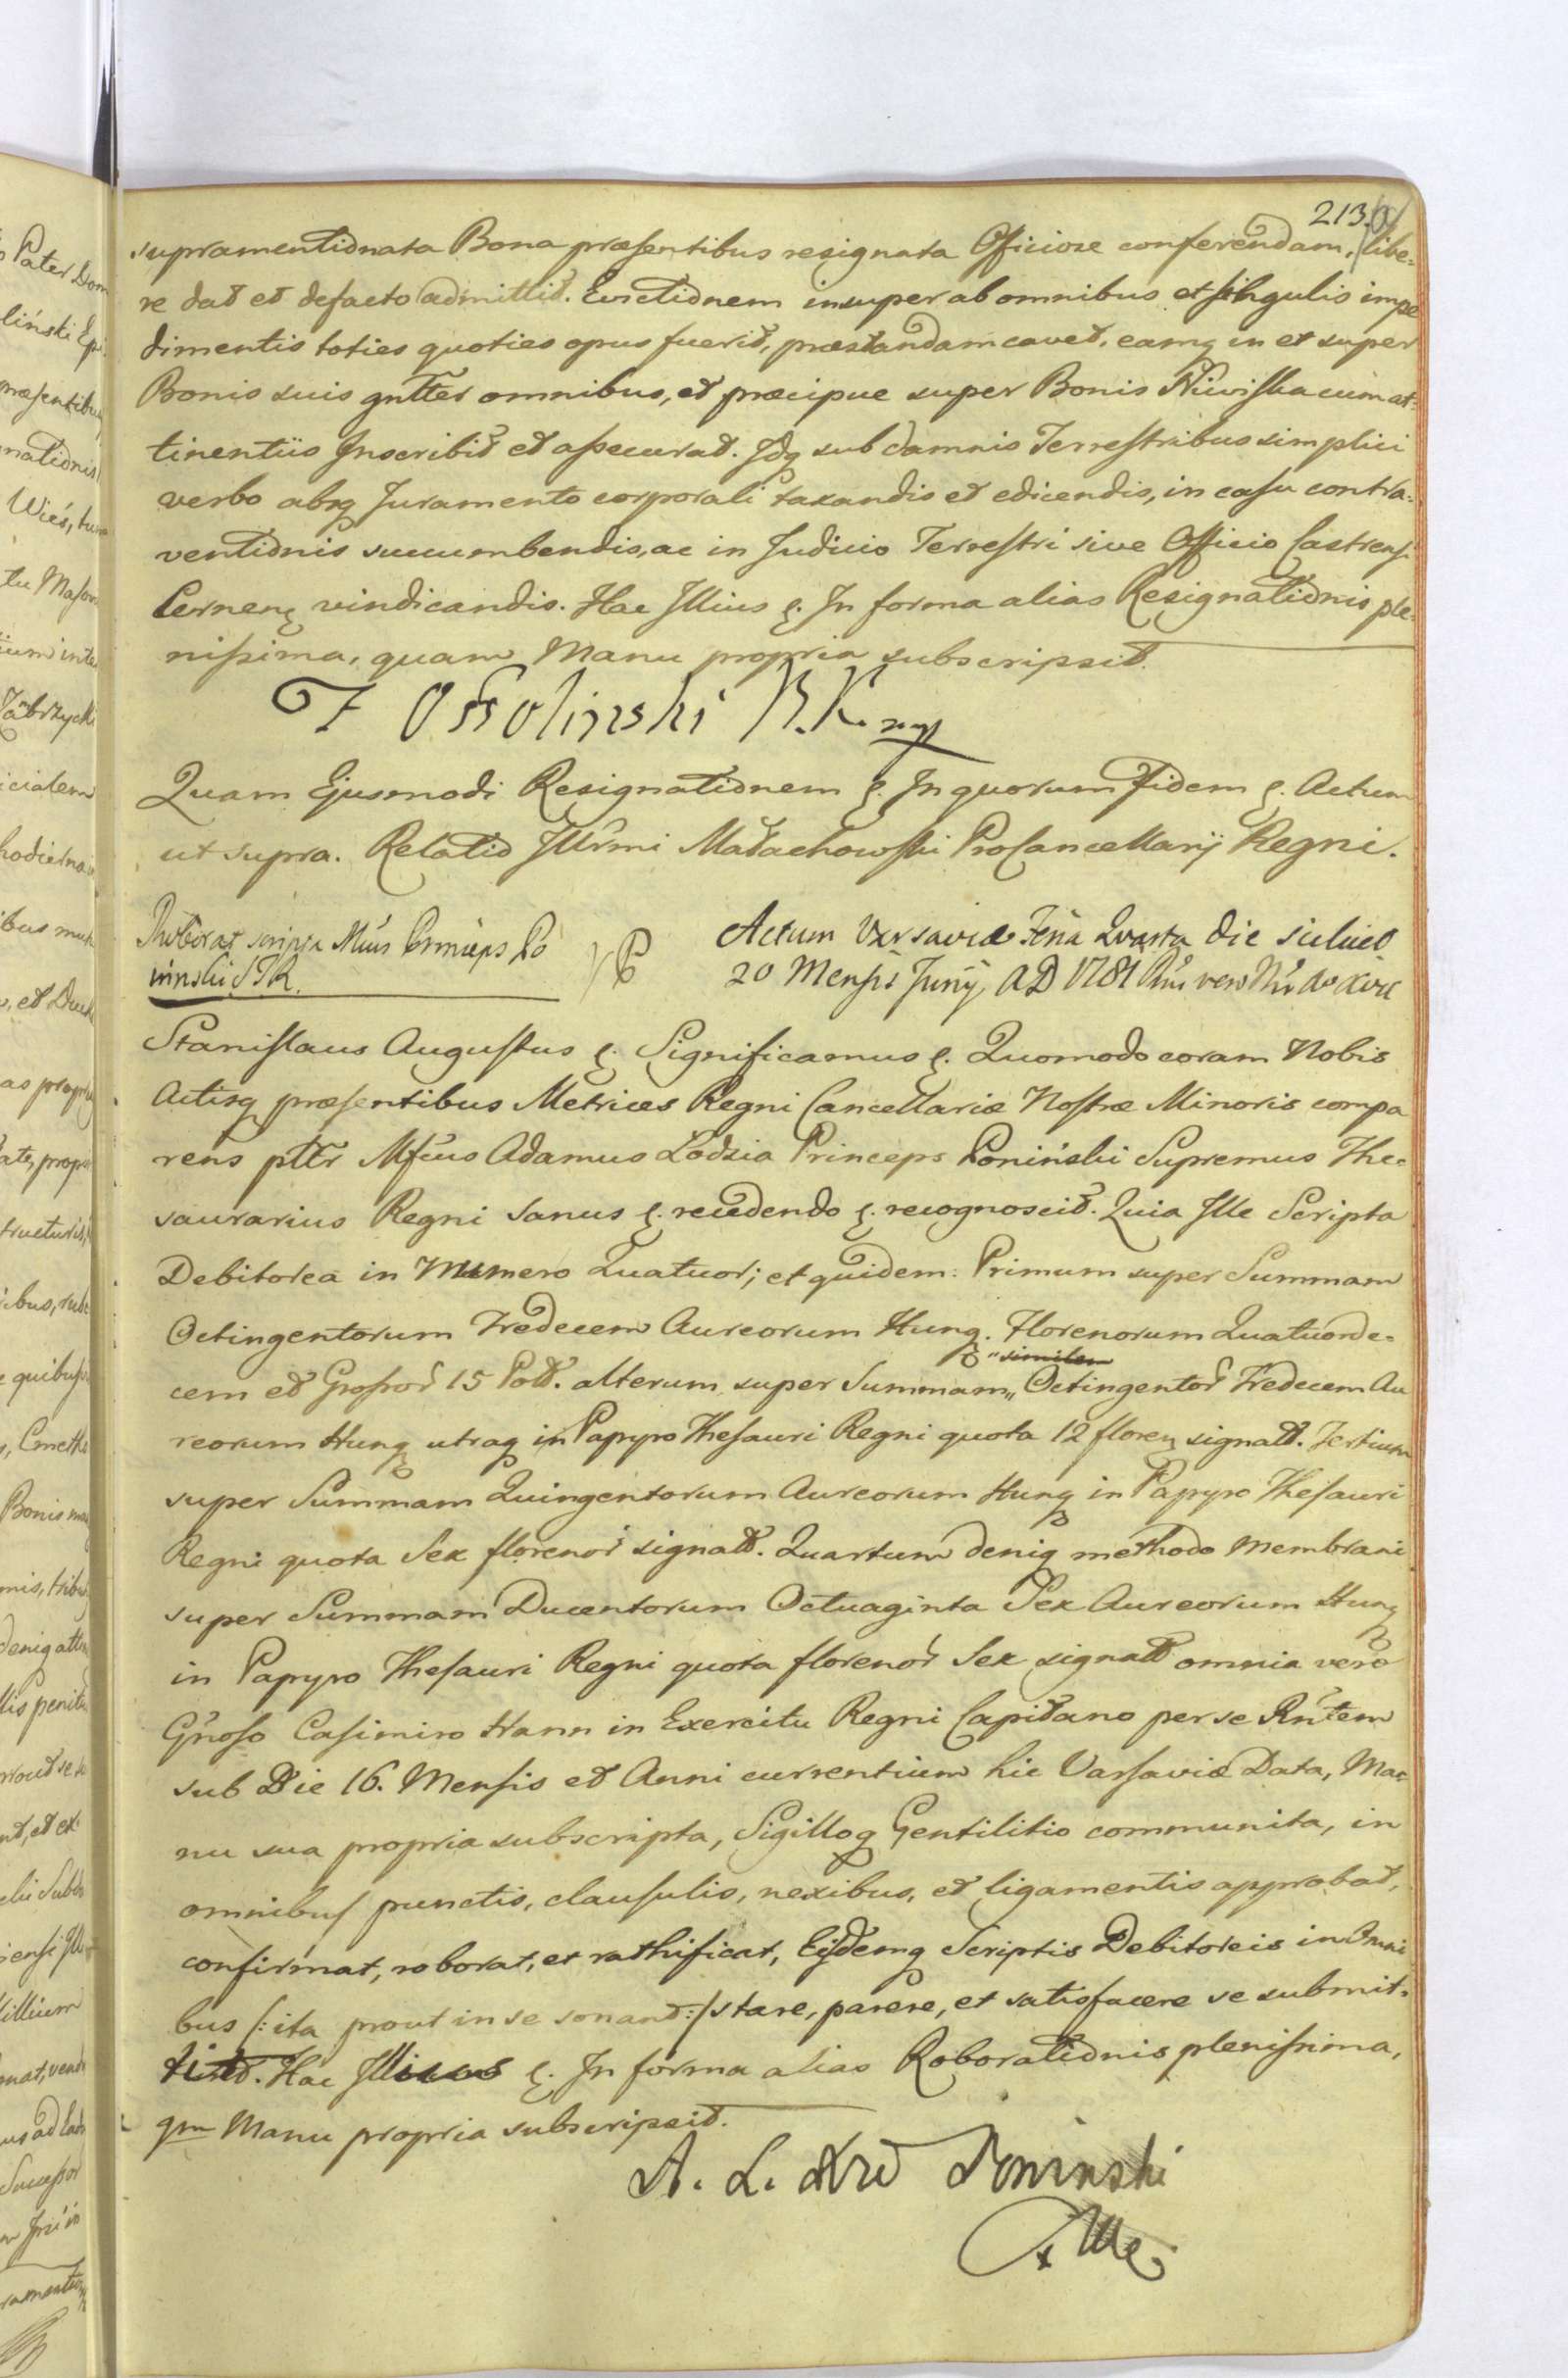 213.
supramentionata Bona præsentibus resignata Officiose conferendam, libe-
re dat et defacto admittit. Evictionem insuper ab omnibus et singulis impe
dimentis toties quoties opus fuerit, præstandam cavet, eamq in et super
Bonis suis gnłter omnibus, et præcipue super Bonis Niwiska cum at-
tinentiis Inscribit et assecurat. Idq sub damnis Terrestribus simplici
verbo absq Juramento corporali taxandis et edicendis, in casu contra-
ventionis succumbendis, ac in Judicio Terrestri sive Officio Castrensi
Cernenq vindicandis. Hac Illius &. In forma alias Resignationis ple-
nissima, quam Manu propria subscripsit.
F Ossolinski mp
Quam Ejusmodi Resignationem &. In quorum Fidem &. Actum
ut supra. Relatio Illŕmi Małachowski ProCancellarij Regni.
Roborat scripta Princeps Po
ninski S T R.
Actum Varsaviæ Feria Quarta die scilicet
20 Mensis Junij, A D 1781
Stanislaus Augustus &. Significamus &. Quomodo coram Nobis
Actisq præsentibus Metrices Regni Cancellariæ Nostræ Minoris compa
rens pltr Mfcus Adamus Łodzia Princeps Poniński Supremus The-
saurarius Regni sanus &. recedendo &. recognoscit. Quia Ille Scripta
Debitorea in Numero Quatuor; et quidem: Primum super Summam
Octingentorum Tredecem Aureorum Hung. Florenorum Quatuorde-
cem et Grossor 15 Poll. alterum super Summam „similem Octingentor Tredecem Au
reorum Hung utraq in Papyro Thesauri Regni quota 12 floren signatt. Tertium
super Summam Quingentorum Aureorum Hung in Papyro Thesauri
Regni quota Sex florenor signatt. Quartum deniq methodo Membrani
super Summam Ducentorum Octuaginta Sex Aureorum Hung
in Papyro Thesauri Regni quota florenor Sex signatt omnia vero
Gnoso Casimiro Hann in Exercitu Regni Capitano per se Rntem
sub Die 16. Mensis et Anni currentium hic Varsaviæ Data, Ma-
nu sua propria subscripta, Sigilloq Gentilitio communita, in
omnibus punctis, clausulis, nexibus, et ligamentis approbat,
confirmat, roborat, et rathificat, Eisdemq Scriptis Debitoreis in Omni
bus /: ita prout in se sonant :/ stare, parere, et satisfacere se submit-
tit. Hac Illius &. In forma alias Roborationis plenissima,
qm Manu propria subscripsit.
A. Ł. Poninski